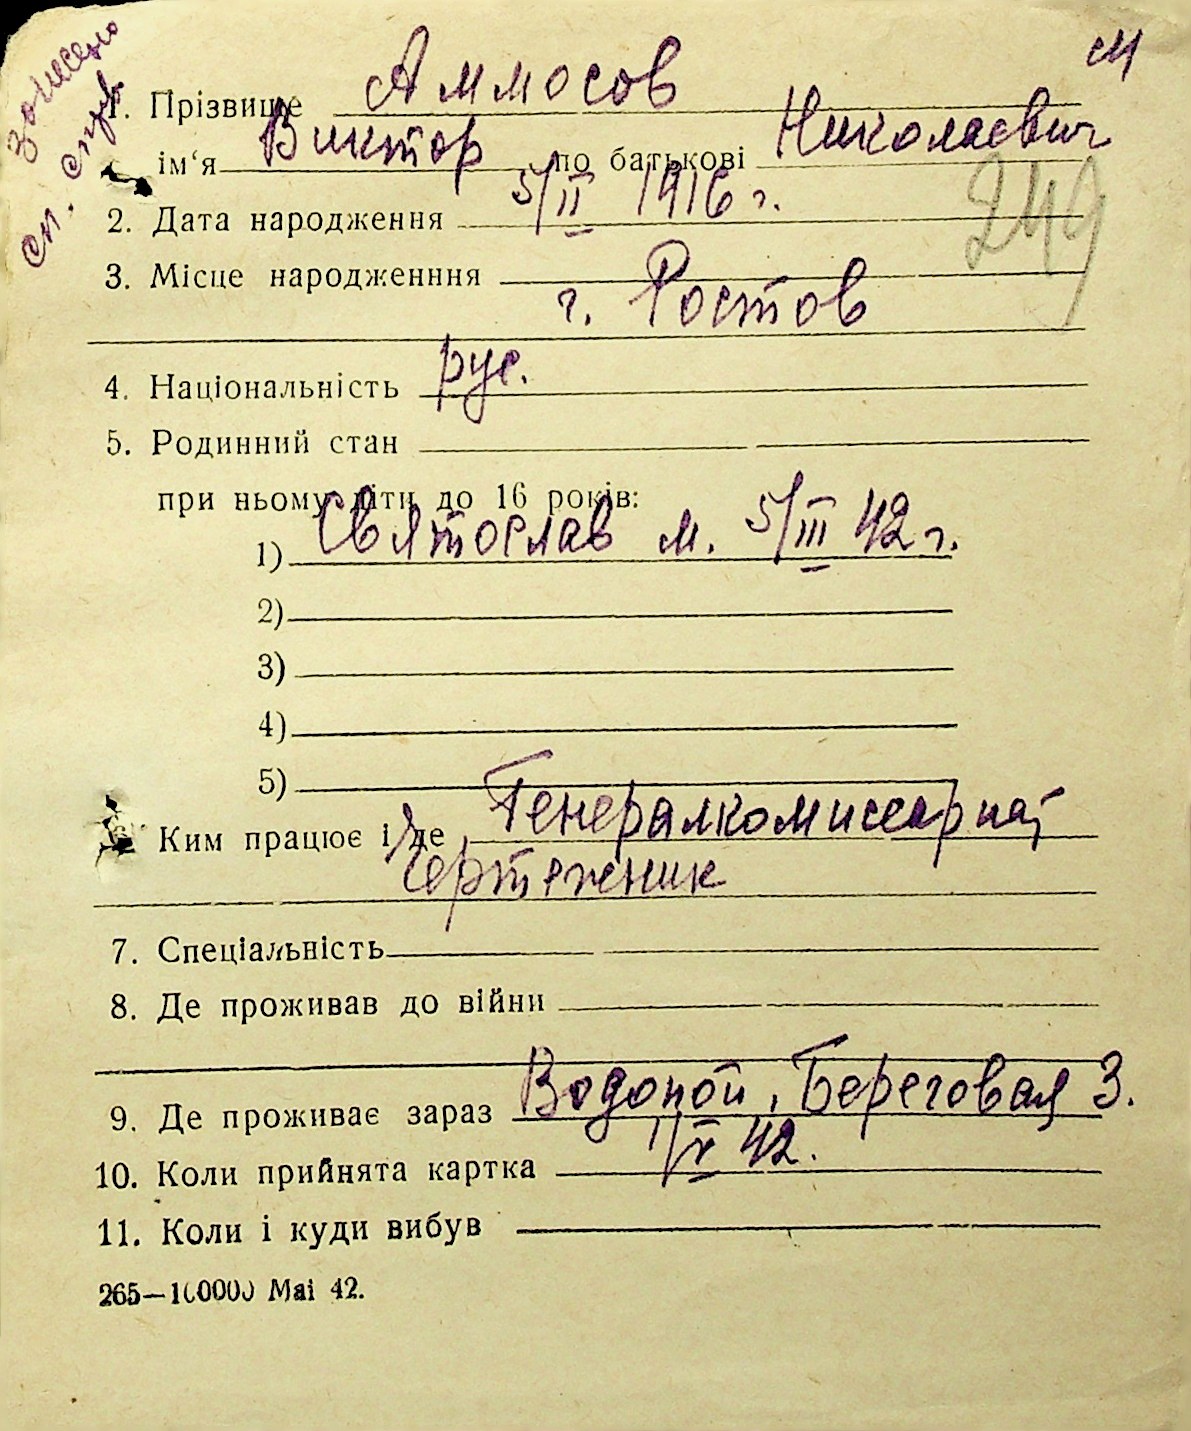 занесено
сп. спр.
м
1. Прізвище Аммосов
ім‘я Виктор по батькові Николаевич
249
2. Дата народження 5/II 1916 г.
3. Місце народженння
г. Ростов
4. Національність рус.
5. Родинний стан
при ньому діти до 16 років:
1) Святослав м. 5/III 42 г.
2)
3)
4)
5)
6. Ким працює і де Генералкомиссариат
Чертежник
7. Спеціальність
8. Де проживав до війни
9. Де проживає зараз Водопой, Береговая 3.
10. Коли прийнята картка 1/X 42.
11. Коли і куди вибув
265—100000 Mai 42.